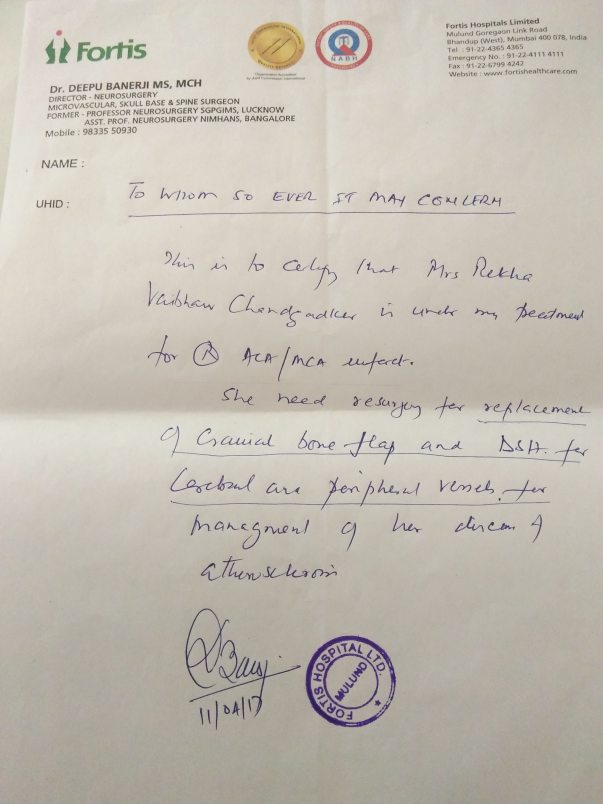 Fortis
NABH
Fortis Hospitals Limited
Mulund Goregaon Link Road
Bhandup (West), Mumbai 400 078, India
Tel : 91-22-4365 4365
Emergency No. : 91-22-4111 4111
Fax : 91-22-6799 4242
Website : www.fortishealthcare.com
Dr. DEEPU BANERJI MS, MCH
DIRECTOR - NEUROSURGERY
MICROVASCULAR, SKULL BASE & SPINE SURGEON
FORMER - PROFESSOR NEUROSURGERY SGPGIMS, LUCKNOW
ASST. PROF. NEUROSURGERY NIMHANS, BANGALORE
Mobile : 98335 50930
NAME :
UHID :
TO WHOM SO EVER IT MAY CONCERN
This is to certify that Mrs Rekha
Vaibhav Chandgadker is under my treatment
for R ACA/MCA infarct.
She need resurgery for replacement
of Cranial bone flap and DSA for
Cerebral and peripheral vessels for
managment of her disease of
atherosclerosis
11/04/17
FORTIS HOSPITAL LTD.
MULUND